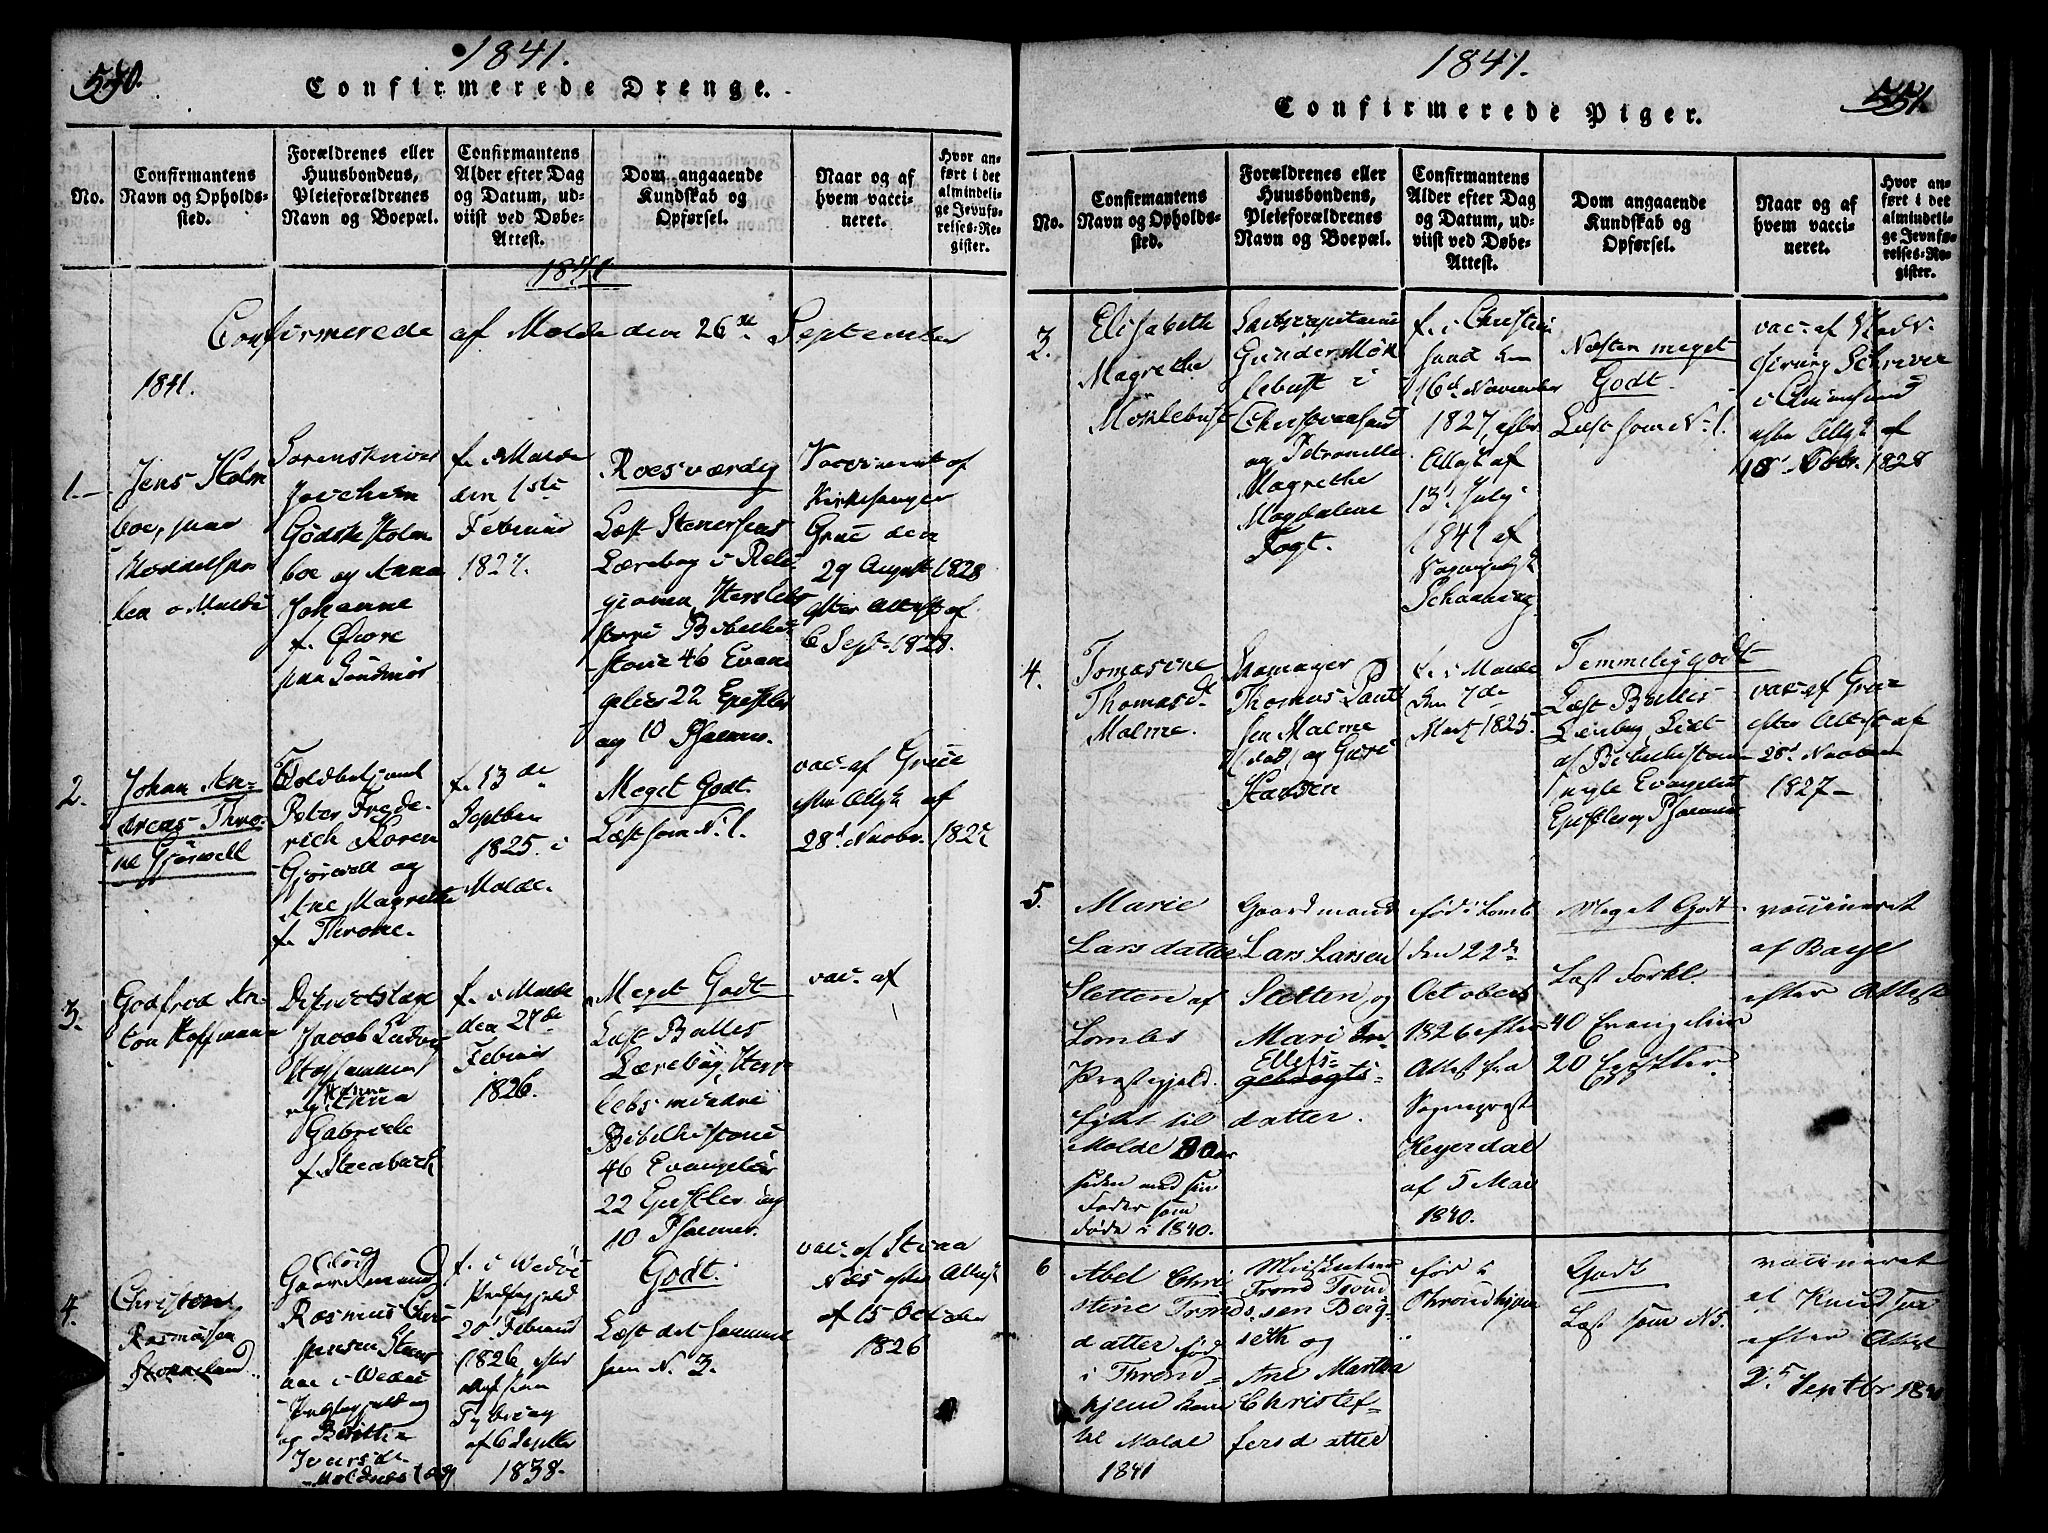 1841.
Confirmerede Drenge.
No.
Confirmantens
Navn og Opholds-
sted.
Forældrenes eller
Huusbondens,
Pleieforældrenes
Navn og Boepæl.
Confirmantens
Alder efter Dag
og Datum, ud-
viist ved Døbe-
Attest.
Dom angaaende
Kundskab og
Opførsel.
Naar og af
hvem vacci-
neret.
Hvor an-
ført i det
almindeli-
ge Jevnfø-
relses-Re-
gister.
1841
Confirmerede af Molde den 26de September
1841.
1.
Jens Holm
boe, paa
i Molde
Sorenskriver
Jochum
Godske Holm
boe og Anna
Johanne
f. Øwre
paa Sundmør
f. i Molde
den 1ste
Februar
1827.
Roesværdig
Læst Stenersens
Lærebog i Reli-
gionen, Herslebs
større Bibelhi-
storie 46 Evan
gelier 22 Epistler
og 10 Psalmer.
Vaccineret af
Kirkesanger
Grüe den
29 August 1828
efter Attest af
6 Sept. 1828.
2.
Johan An-
dreas Thro-
ne Gjørwell
Toldbetjent
Peter Frede-
rich Koren
Gjørwell og
Ane Magrethe
f. Throne.
f. 13de
Septbr
1825 i
Molde.
Meget Godt.
Læst som N. 1.
vac. af Grüe
efter Attest af
28d Novbr. 1827
3.
Godfred An-
ton Hoffmann
Jacob Ludvig
Hoffmann
og
Gabriele
f. Steenbuch
f. i Molde
den 27de
Februar
1826.
Meget Godt
Læst Balles
Lærebog, Hers-
lebs mindre
Bibelhistorie
46 Evangelier
22 Epistler og
10 Psalmer.
vac. af
4.
Christen
Rasmussen
Gaardmand
Rasmus Chri
stensen
i Wedøe
Præstegjeld og
Iversd.
Moldnes
f. i Wedøe
Præstegjeld
20d Februar
1826, efter
Attest fra
af 6 Septbr
1838.
Godt.
Læst det samme
som N. 3.
vac. af
Næs efter Attest
af 15 October
1826
1841.
551.
Confirmerede Piger.
No.
Confirmantens
Navn og Opholds-
sted.
Forældrenes eller
Huusbondens,
Pleieforældrenes
Navn og Boepæl.
Confirmantens
Alder efter Dag
og Datum, ud-
viist ved Døbe-
Attest.
Dom angaaende
Kundskab og
Opførsel.
Naar og af
hvem vacci-
neret.
Hvor an-
ført i det
almindeli-
ge Jevnfø-
relses-Re-
gister.
3.
Elisabeth
Magrethe
Møklebust
Gunder Møk
lebust i
Christiansund
og Petronelle
Magrethe
Magdalene
Fogt.
f. i Christian
sund den
16d November
1827, efter
Attest af
13d July
1841 af
Næsten meget
Godt.
Læst som N. 1.
vac. af
i Christiansund
efter Attest af
18d Octbr. 1828
4.
Tomasine
Thomasd.
Malme.
Thomas
sen Malme
og Guri
Hansen
f. i Molde
den 7de
Marts 1825.
Temmelig godt
Læst Balles
Lærebog, Lidt
af Bibelhistorien
nogle Evangelier
Epistler og Psalmer
vac. af Grüe
efter Attest af
28d Novbr
1827
5.
Marie
Larsdatter
Sletten af
Lombs
Præstegjeld.
flyt til
Molde
siden med sin
Fader som
døde i 1840.
Gaardmand
Lars Larsen
Sletten og
Mari
Ellefs-
datter.
fød i Lomb
den 22de
October
1826 efter
Attest fra
Sognepræst
Heyerdal
af 5 Mai
1840.
Meget Godt
Læst Forkl.
40 Evangelier
20 Epistler.
vaccineret
af Barye
efter Attest
6
Abel Chri
stine Tronds
datter fød
i Thrond-
hjem kom
til Molde
1841
Trond Trond
sen Berg-
seth og
Ane Martha
Christof-
fersdatter
før i
Throndhjem
Godt
Læst som N 5.
vaccineret
af Knudsen
efter Attest
25 Septbr 1841